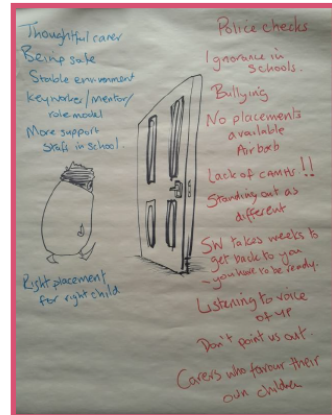 Thoughtful carer
Being safe
Stable environment
Keyworker/Mentor/
role model
More support
Staff in school
Right placement
for right child
Police checks.
Ignorance in
Schools.
Bullying
No placements
available
Airbnb
Lack of carers!!
Standing out as
different
SW takes weeks to
get back to you
- you have to be ready.
Listening to voice
of YP
Don't point us out.
Carers who favour their
own children